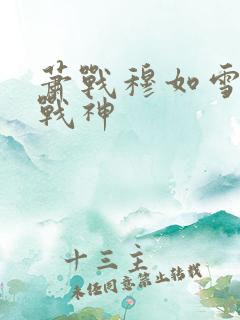 蕭戰穆如雪
戰神
十三主
未經同意禁止轉載